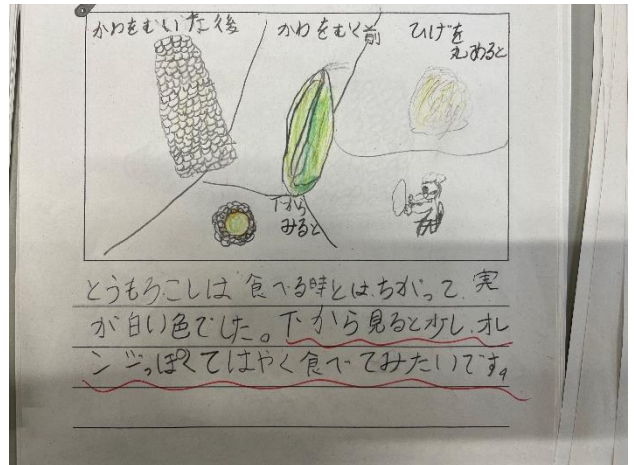 かわをむいた後
かわをむく前
ひげを
丸めると
下から
みると
とうもろこしは食べる時とはちがって、実
が白い色でした。下から見ると少し、オレ
ンジっぽくてはやく食べてみたいです。